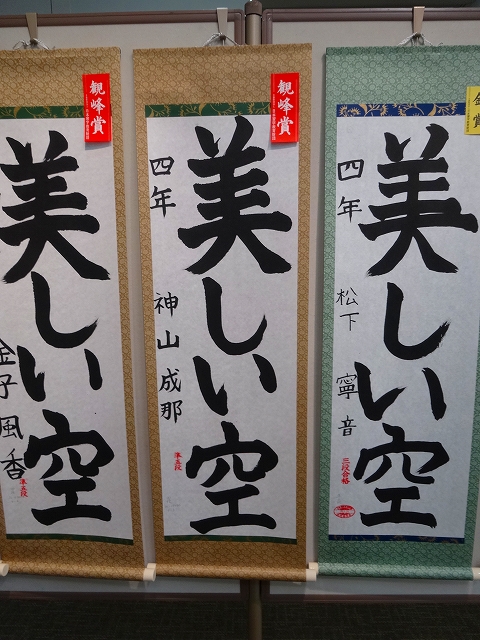 観峰賞
美しい空
金子風香
準五段
観峰賞
美しい空
四年
神山成那
準五段
金賞
美しい空
四年
松下寧音
三段合格